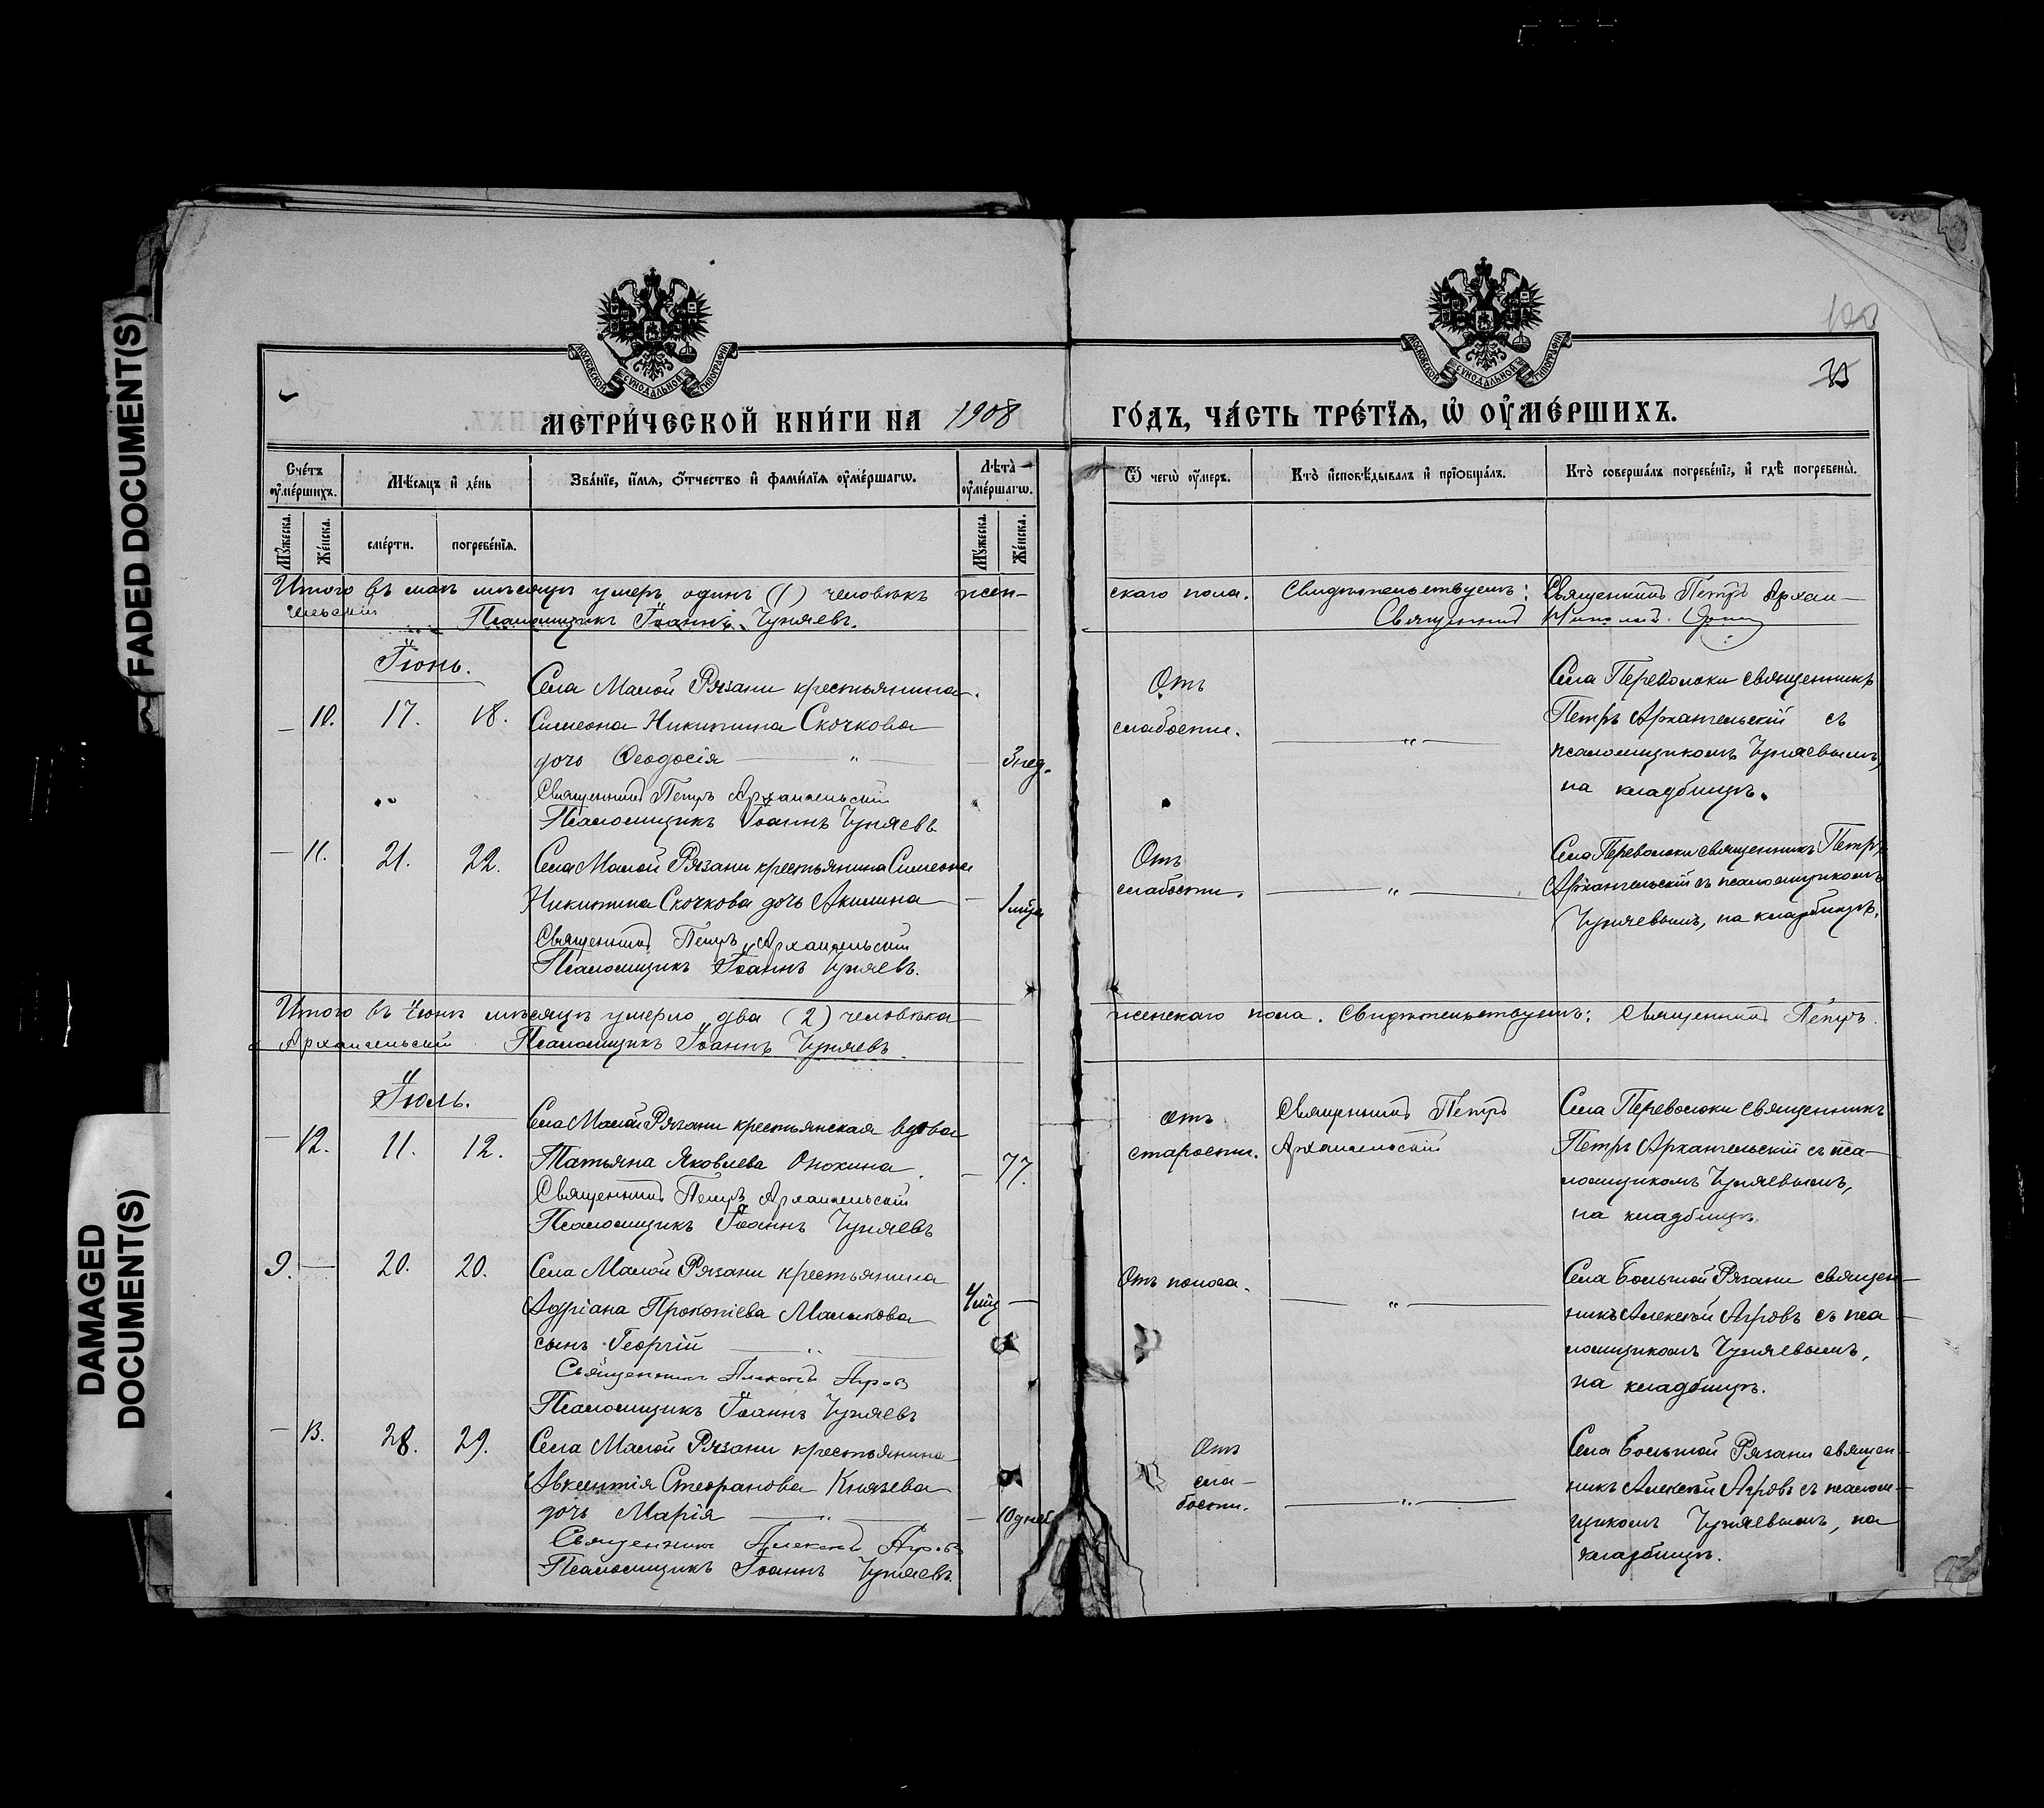 FADED DOCUMENT(S)
DAMAGED
DOCUMENT(S)
МОСКОВСКОЙ СѴНОДАЛЬНОЙ ТИПОГРАФІИ
МОСКОВСКОЙ СѴНОДАЛЬНОЙ ТИПОГРАФІИ
МЕТРИ́ЧЕСКОЙ КНИ́ГИ НА 1908 ГО́ДЪ, ЧА́СТЬ ТРЕ́ТЇѦ, Ѡ҆ ОУ҆МЕ́РШИХЪ.
Счетъ
оумершихъ.
Мѣсяцъ и день
Званіе, имя, отчество и фамилія оумершагѡ.
Лѣта
оумершагѡ.
Ѿ чегѡ оумеръ.
Кто исповѣдывалъ и пріобщалъ.
Кто совершалъ погребеніе, и гдѣ погребены.
Мужеска.
Женска.
смерти.
погребенія.
Мужеска.
Женска.
Итого въ маѣ мѣсяцѣ умеръ одинъ (1) человѣкъ жен-
скаго пола. Свидѣтельствуемъ: Священникъ Петръ Архан-
гельскій Псаломщикъ Іоаннъ Чуняевъ.
Священникъ Николай
Іюнь.
— 10. 17. 18.
Села Малой Рязани крестьянина
Симеона Никитина Скочкова
дочь Ѳеодосія — „ —
— 3 нед.
Священникъ Петръ Архангельскій
Псаломщикъ Іоаннъ Чуняевъ
Отъ
слабости.
— „ —
Села Переволоки священникъ
Петръ Архангельскій съ
псаломщикомъ Чуняевымъ,
на кладбищѣ.
— 11. 21. 22.
Села Малой Рязани крестьянина Симеона
Никитина Скочкова дочь Акилина
— 1 мѣц.
Священникъ Петръ Архангельскій
Псаломщикъ Іоаннъ Чуняевъ.
Отъ
слабости.
— „ —
Села Переволоки священникъ Петръ
Архангельскій съ псаломщикомъ
Чуняевымъ, на кладбищѣ.
Итого въ іюнѣ мѣсяцѣ умерло два (2) человѣка
женскаго пола. Свидѣтельствуемъ: Священникъ Петръ
Архангельскій Псаломщикъ Іоаннъ Чуняевъ.
Іюль.
— 12. 11. 12.
Села Малой Рязани крестьянская вдова
Татьяна Яковлева
— 77.
Священникъ Петръ Архангельскій
Псаломщикъ Іоаннъ Чуняевъ
Отъ
старости.
Священникъ Петръ
Архангельскій
Села Переволоки священникъ
Петръ Архангельскій съ пса-
ломщикомъ Чуняевымъ,
на кладбищѣ.
9. — 20. 20.
Села Малой Рязани крестьянина
Адріана Прокопіева Малыкова
сынъ Георгій — „ —
4 мѣц —
Священникъ Алексій Агровъ
Псаломщикъ Іоаннъ Чуняевъ
Отъ поноса.
— „ —
Села Большой Рязани священ-
никъ Алексѣй Агровъ съ пса-
ломщикомъ Чуняевымъ,
на кладбищѣ.
— 13. 28. 29.
Села Малой Рязани крестьянина
Авксентія Стефанова Князева
дочь Марія — „ —
— 10 дней
Священникъ Алексій Агровъ
Псаломщикъ Іоаннъ Чуняевъ.
Отъ
сла-
бости.
— „ —
Села Большой Рязани священ-
никъ Алексѣй Агровъ съ псалом-
щикомъ Чуняевымъ, на
кладбищѣ.